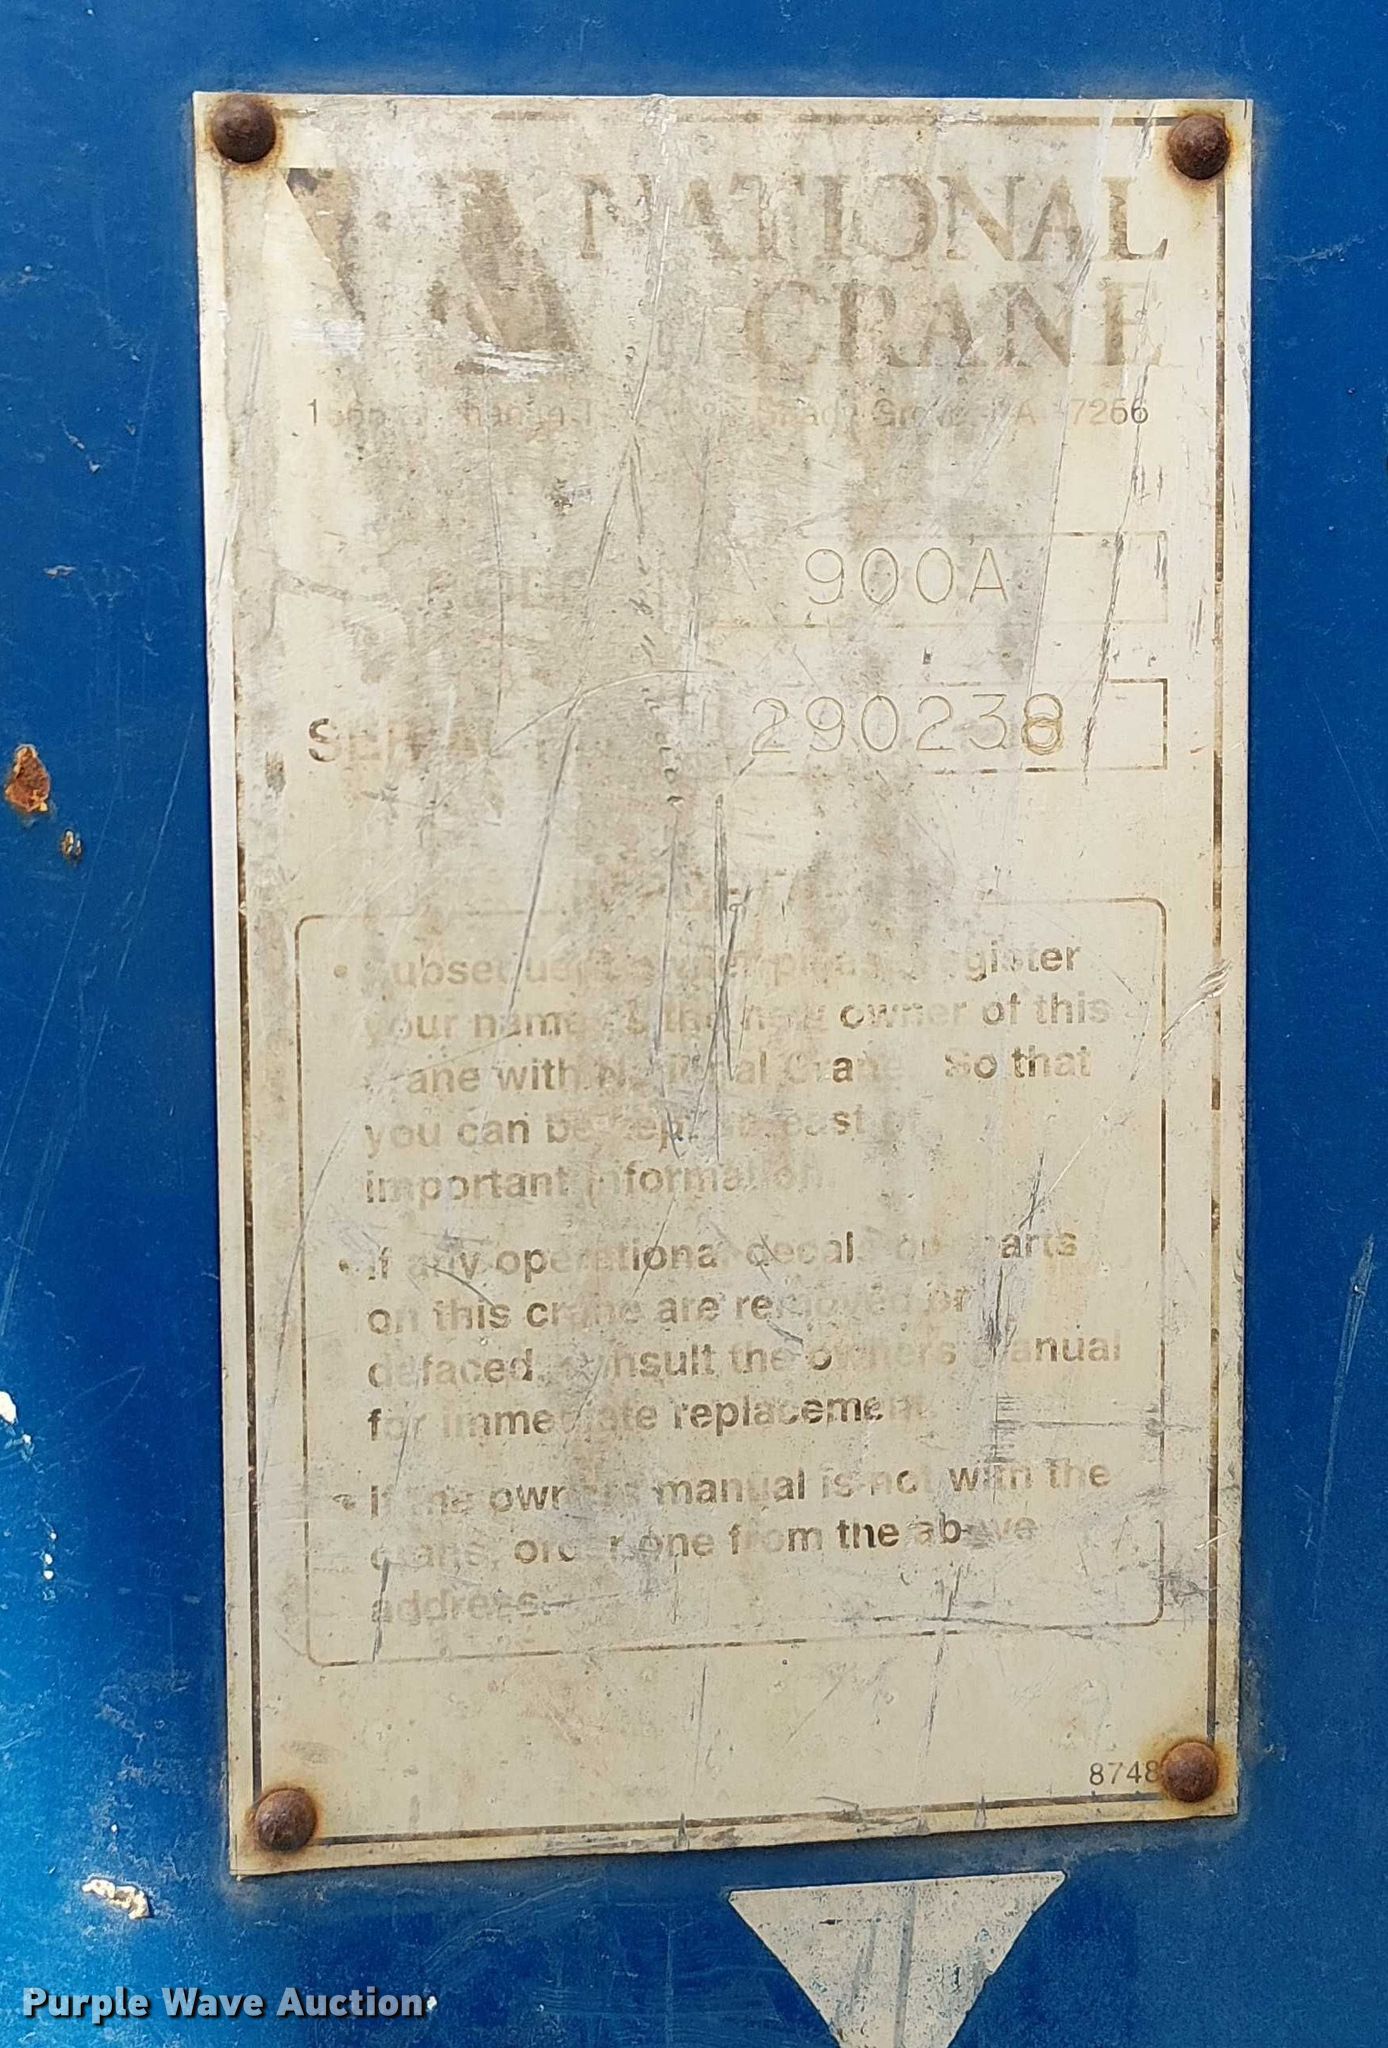 NATIONAL
CRANE
7266
900A
SERIAL
290238
• Subsequent owner please register
your name as the new owner of this
crane with National Crane. So that
you can be kept abreast of
important information.
• If any operational decals or parts
on this crane are removed or
defaced, consult the owners manual
for immediate replacement.
• If the owners manual is not with the
crane, order one from the above
address.
8748
Purple Wave Auction